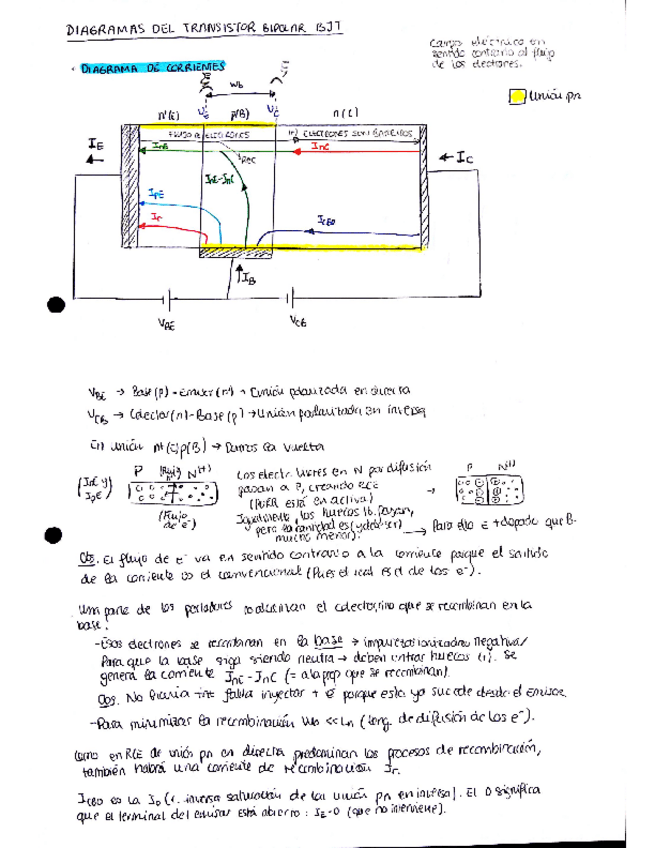 DIAGRAMAS DEL TRANSISTOR BIPOLAR BJT
Campo eléctrico en
sentido contrario al flujo
de los electrones.
· DIAGRAMA DE CORRIENTES
Wb
Unión pn
n+(E)
p(B)
n(C)
FLUJO ELECTRONES
ELECTRONES SON BARRIDOS
IE
InE
IREC
InC
IC
InE-InC
IpE
Ir
ICB0
IB
VBE
VCB
VBE → Base(p) - Emisor(n+) → Unión polarizada en directa
VCB → Colector(n) - Base(p) → Unión polarizada en inversa
En unión n+(E)p(B) → Damos la vuelta
(InE y
IpE)
P
N(+)
(Flujo
de e-)
Los electr. libres en N por difusión
pasan a P, creando RCE
(PURR está en activa)
Igualmente, los huecos lo pasan,
pero la cantidad es
mucho menor).
→ Para ello E + dopado que B.
P
N(+)
Obs. El flujo de e- va en sentido contrario a la corriente porque el sentido
de la corriente es el convencional (Pues el real es el de los e-).
Una parte de los portadores no alcanzan el colector, sino que se recombinan en la
base:
-Esos electrones se recombinan en la base → impurezas ionizadas negativas/
Para que la base siga siendo neutra → deben entrar huecos (+). Se
genera la corriente InE - InC (= a la pop que se recombinan).
Obs. No haría falta inyectar + e- porque esto ya sucede desde el emisor.
-Para minimizar la recombinación Wb << Ln (long. de difusión de los e-).
Como en RCE de unión pn en directa predominan los procesos de recombinación,
también habrá una corriente de recombinación Ir.
ICB0 es la I0 (c. inversa saturación de la unión pn en inversa). El 0 significa
que el terminal del emisor está abierto: IE=0 (que no interviene).